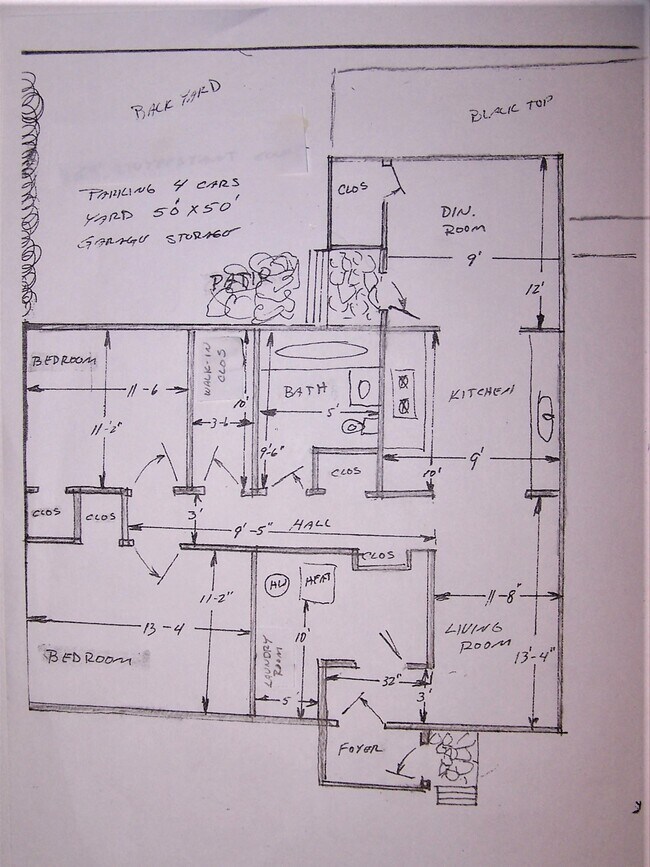 BACK YARD
BLACK TOP
PARKING 4 CARS
YARD 50' X 50'
GARAGE STORAGE
CLOS
DIN.
ROOM
9'
12'
PATIO
BEDROOM
11-6
11'-2"
WALK-IN
CLOS
10'
3-6
BATH
5'
9'-6"
CLOS
KITCHEN
9'
10'
CLOS
CLOS
3'
9'-5"
HALL
CLOS
HW
HEAT
11-2"
13-4
BEDROOM
LAUNDRY
ROOM
10'
5'
11'-8"
LIVING
ROOM
13'-4"
32"
3'
FOYER